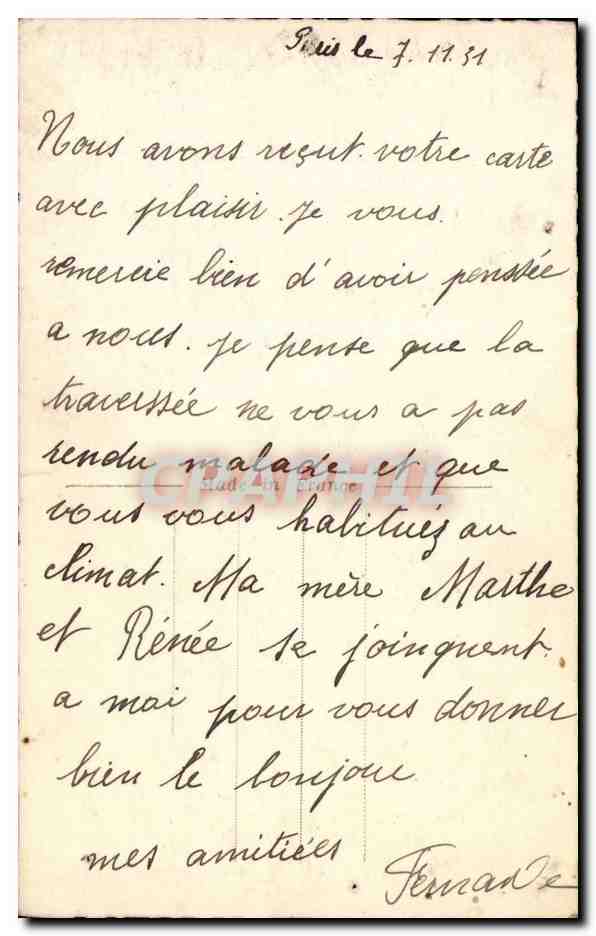 Paris le 7.11.31
Nous avons reçut votre carte
avec plaisir. Je vous
remercie bien d'avoir penssée
a nous. Je pense que la
traverssée ne vous a pas
rendu malade et que
CPAPHIL
Made in France
vous vous habituéz au
climat. Ma mère Marthe
et Rénée se joinguent
a moi pour vous donner
bien le bonjour
mes amitiées
Fernande